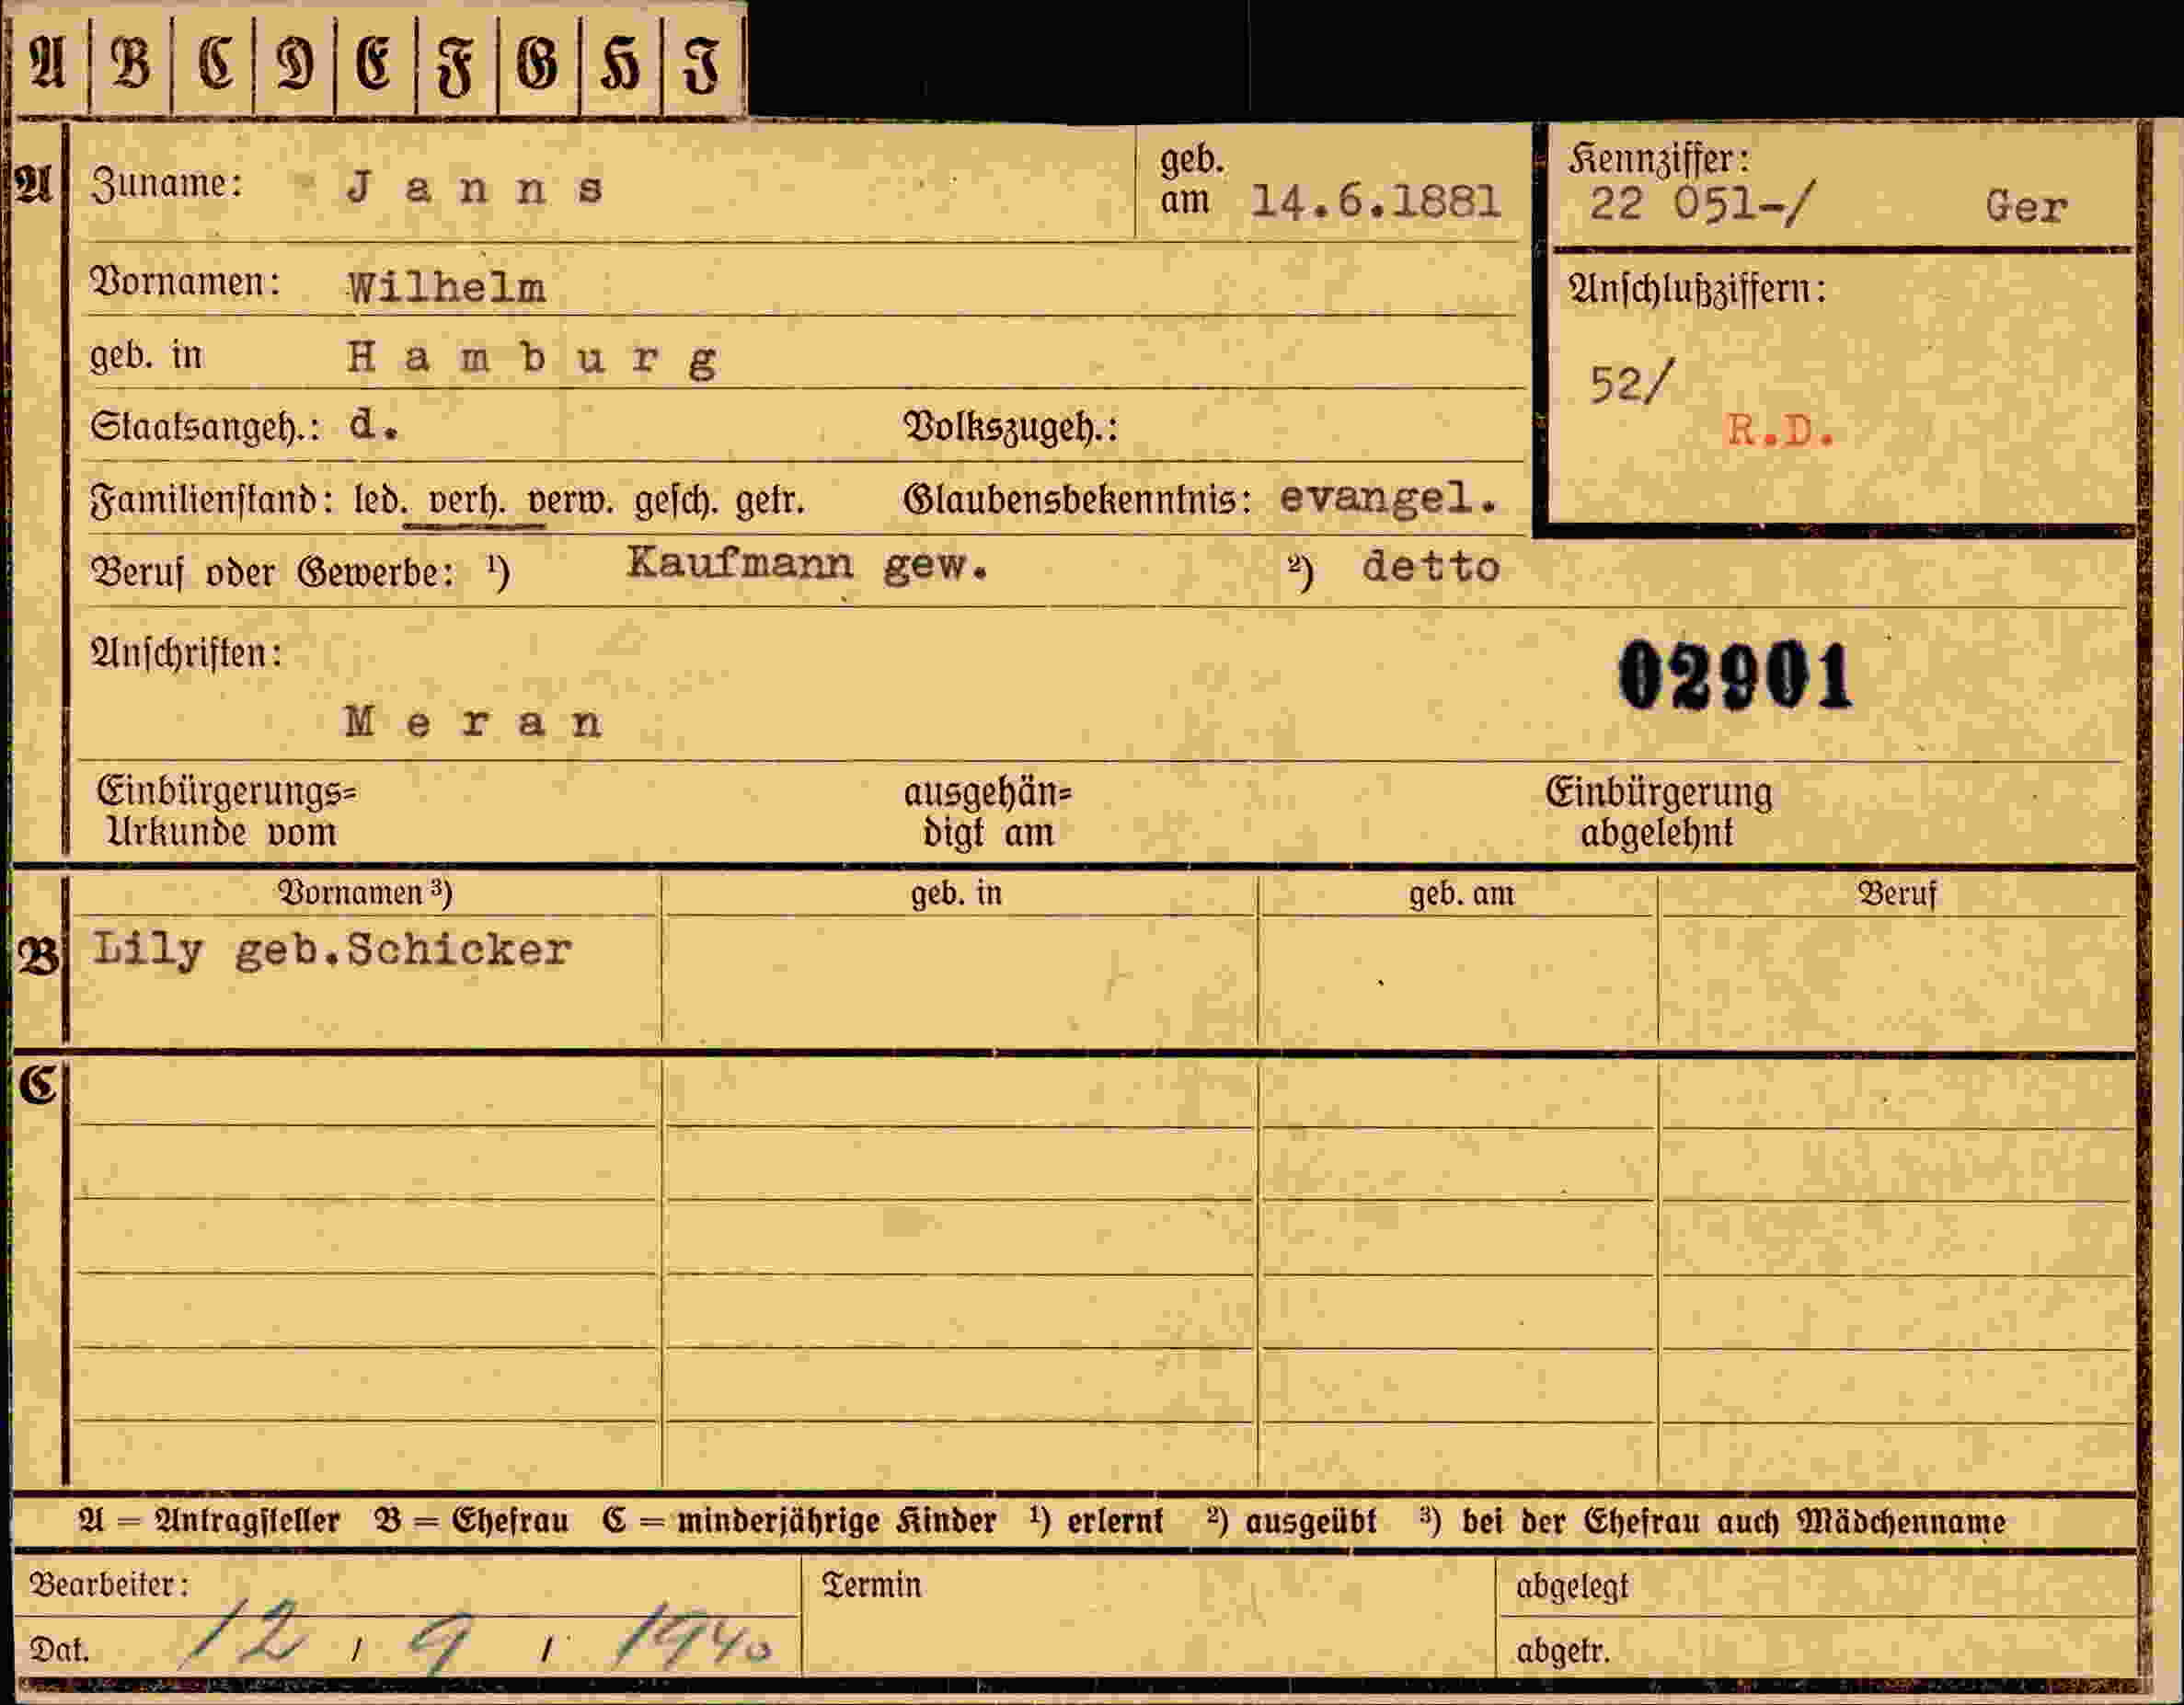 A B C D E F G H I
A Zuname: Janns geb. am 14.6.1881
Kennziffer:
22 051-/ Ger
Vornamen: Wilhelm
Anschlußziffern:
geb. in Hamburg
52/
Staatsangeh.: d. Volkszugeh.:
R.D.
Familienstand: led. verh. verw. gesch. getr. Glaubensbekenntnis: evangel.
Beruf oder Gewerbe: ¹) Kaufmann gew. ²) detto
Anschriften:
02901
Meran
Einbürgerungs= ausgehän= Einbürgerung
Urkunde vom digt am abgelehnt
Vornamen ³) geb. in geb. am Beruf
B Lily geb.Schicker
C
A = Antragsteller B = Ehefrau C = minderjährige Kinder ¹) erlernt ²) ausgeübt ³) bei der Ehefrau auch Mädchenname
Bearbeiter: Termin abgelegt
Dat. 12 / 9 / 1940 abgetr.